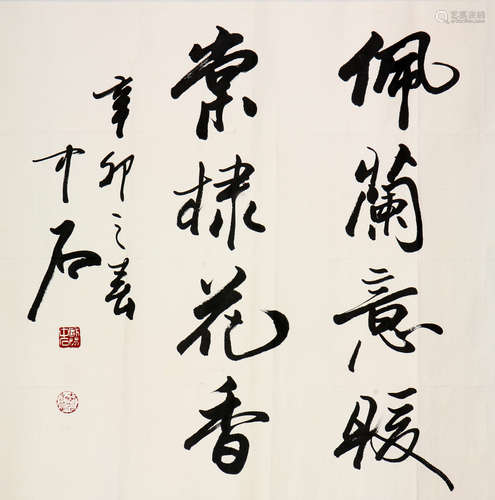 佩蘭意暖
棠棣花香
辛卯之春
中石